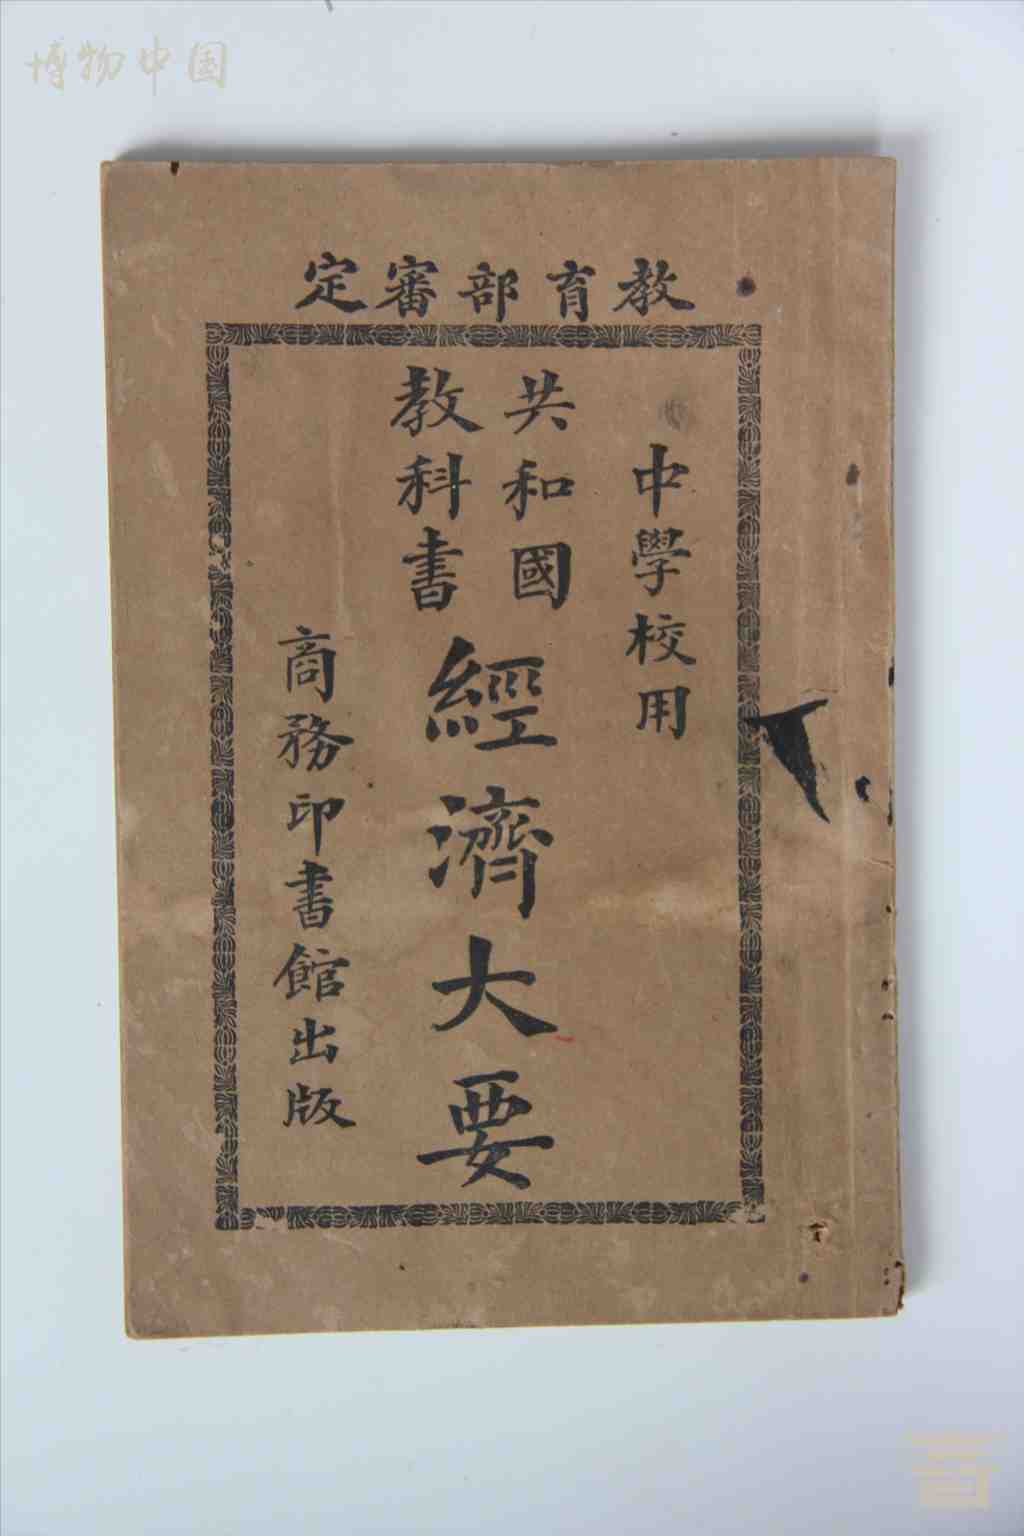 博物中国
教育部審定
中學校用
共和國
教科書
經濟大要
商務印書館出版